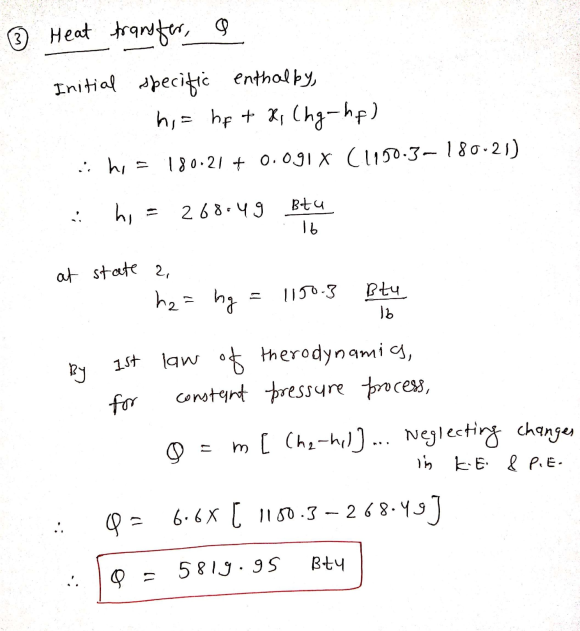 ③ Heat transfer, Q
Initial specific enthalpy,
h₁ = hf + x₁ (hg-hf)
∴ h₁ = 180.21 + 0.091 × (1150.3 - 180.21)
∴ h₁ = 268.49 Btu/lb
at state 2,
h₂ = hg = 1150.3 Btu/lb
By 1st law of therodynamics,
for constant pressure process,
Q = m [ (h₂-h₁)] ... Neglecting changes
in K.E. & P.E.
∴ Q = 6.6 × [ 1150.3 - 268.49]
∴ Q = 5819.95 Btu